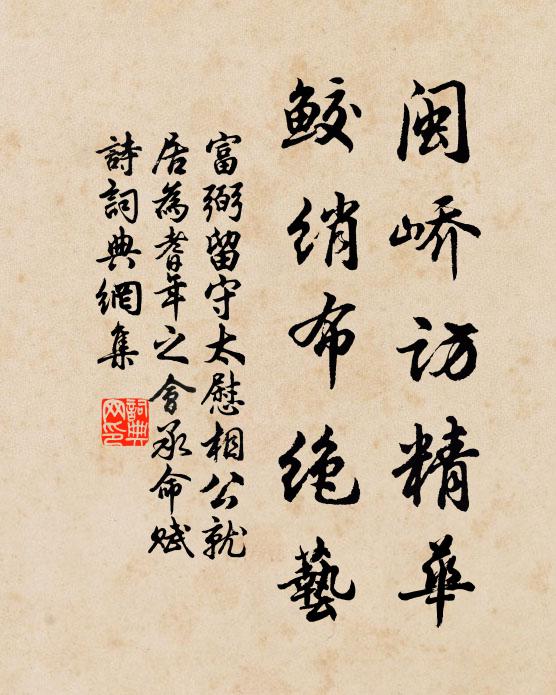 闽峤访精华
鲛绡布绝藝
富弼留守太慰相公就
居為耆年之會承命赋
詩詞典網集
詞典網印